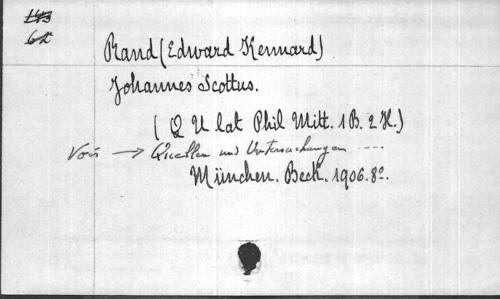 143
62
Rand (Edward Kennard)
Johannes Scottus.
( Q U lat Phil Mitt. 1 B. 2 H.)
Voir → Quellen und Untersuchungen ....
München. Beck. 1906. 8º.